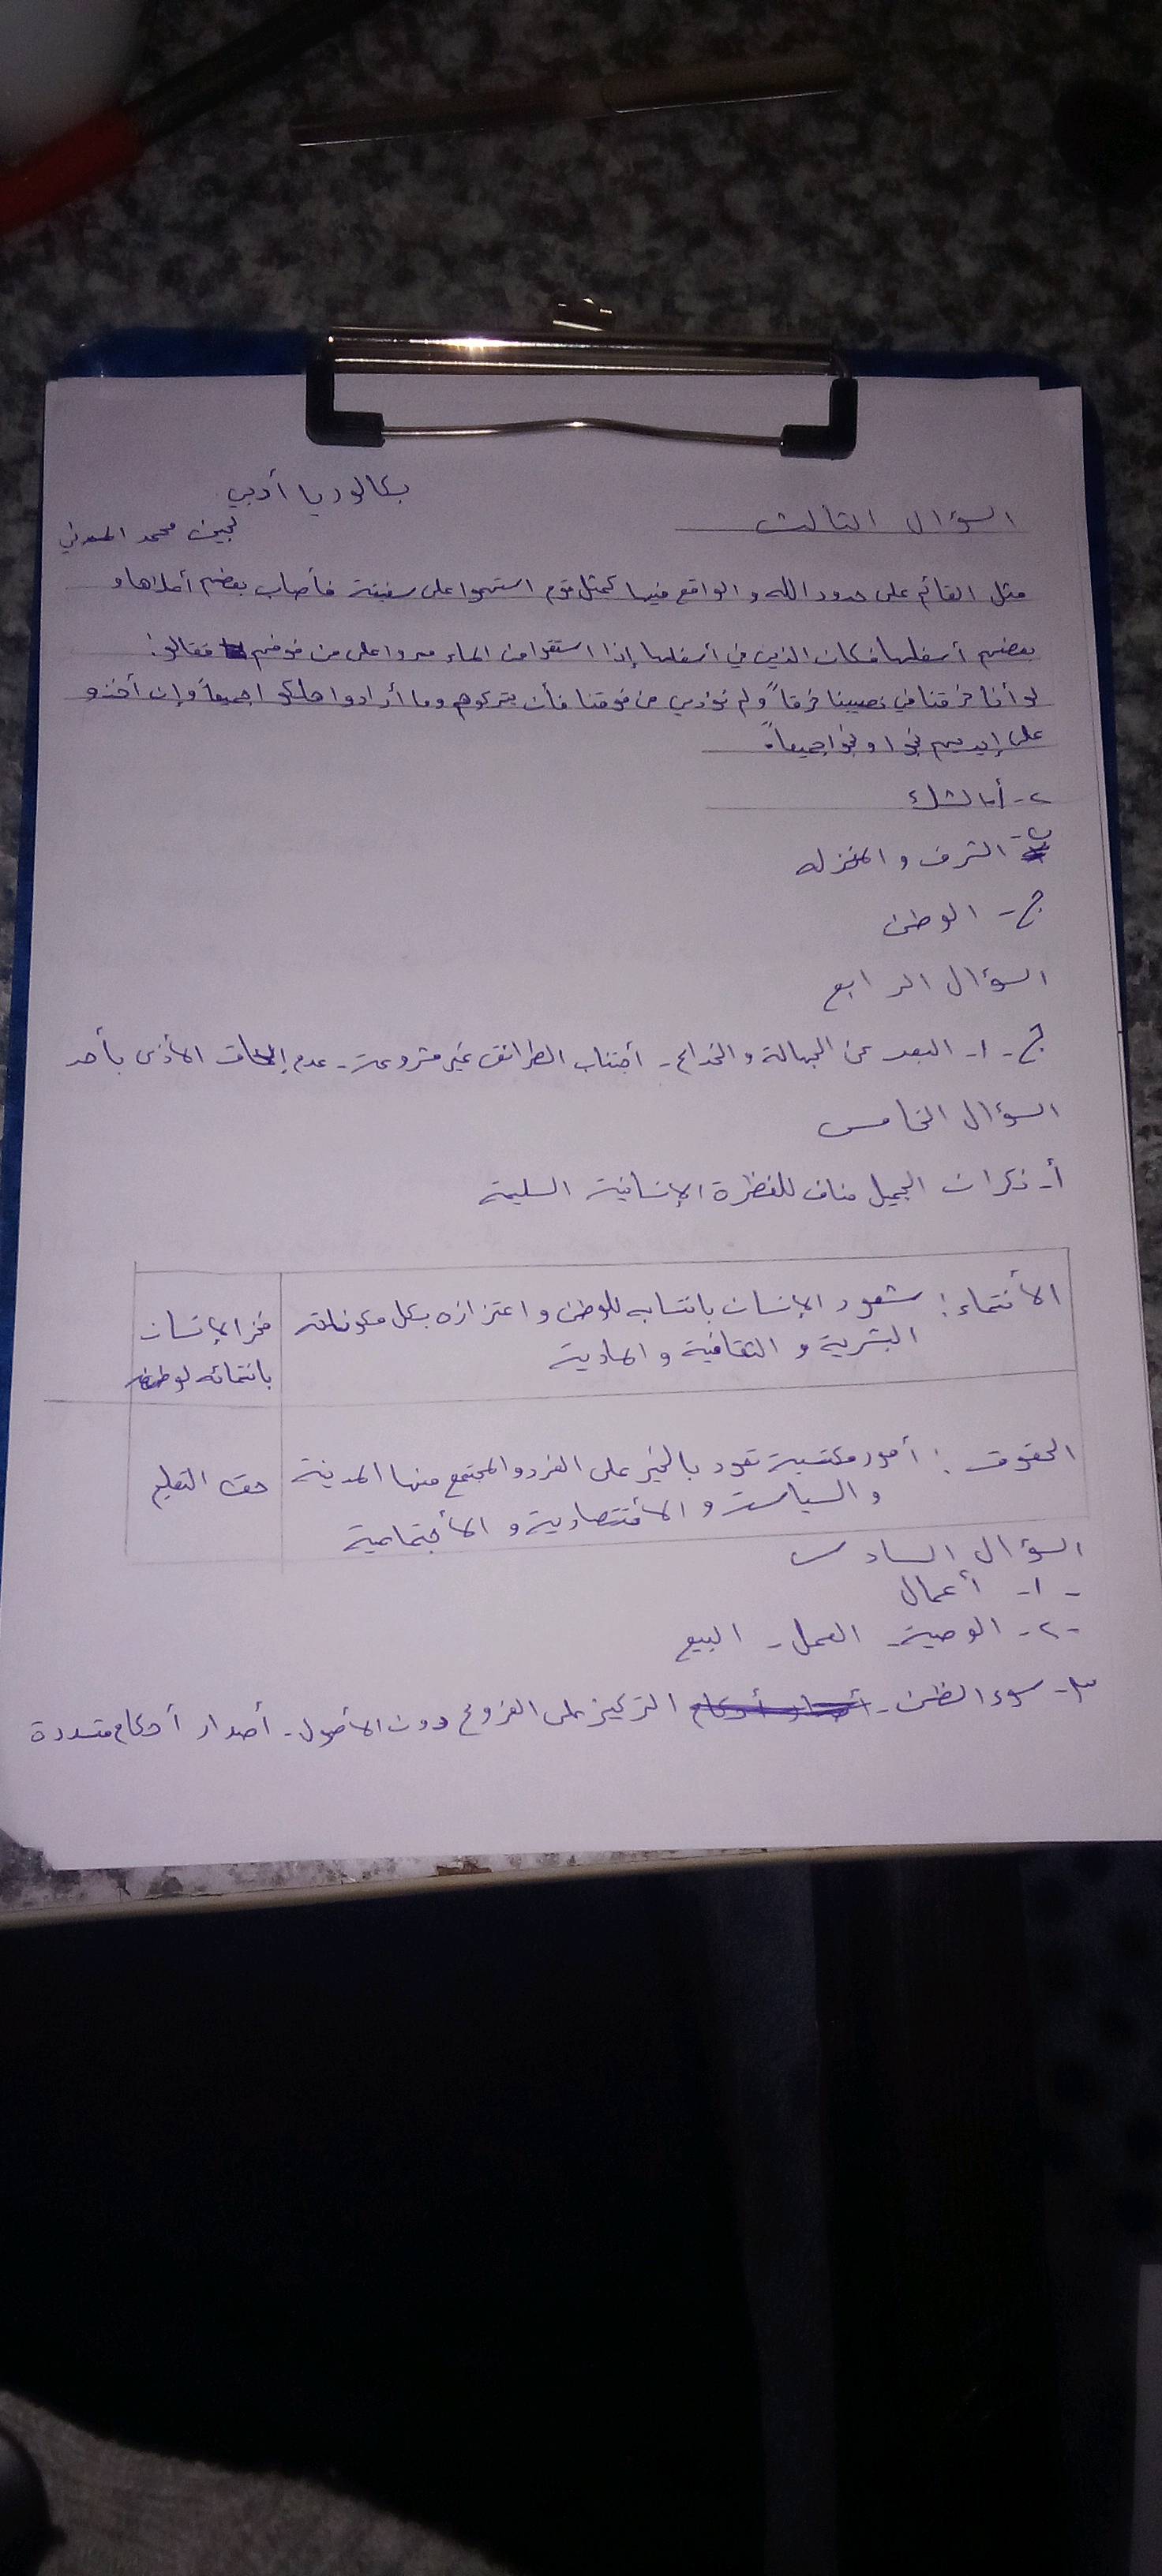 بكالوريا أدبي
السؤال الثالث
لجين محمد
مثل القائم على حدود الله و الواقع فيها كمثل قوم استهموا على سفينة فأصاب بعضهم أعلاها و
بعضهم أسفلها فكان الذين في أسفلها إذا استقوا من الماء مروا على من فوقهم فقالو:
لو أنا خرقنا في نصيبنا خرقاً ولم نؤذي من فوقنا فأن يتركوهم وما أرادوا هلكو اجميعاً وإن أخذو
على إيديهم نجوا و نجوا جميعاً.
٢- أ- الشك
ب- الشرف و المنزلة
ج- الوطن
السؤال الرابع
ج- ١- البعد عن الجهالة والخداع - أجتناب الطرائق غير مشروعة - عدم إلحاق الأذى بأحد
السؤال الخامس
أ- نكران الجميل مناف للفطرة الإنسانية السليمة
الأنتماء: شعور الإنسان بانتسابه للوطن و اعتزازه بكل مكوناته
البشرية و الثقافية و المادية
فخر الإنسان
بانتمائه لوطنه
الحقوق: أمور مكتسبة تعود بالخير على الفرد و المجتمع منها المدنية
و السياسية و الأقتصادية و الأجتماعية
حق التعليم
السؤال السادس
- ١- أعمال
- ٢- الوصية - العمل - البيع
٣- سوء الظن - التركيز على الفروع دون الأصول - أصدار أحكام متسددة